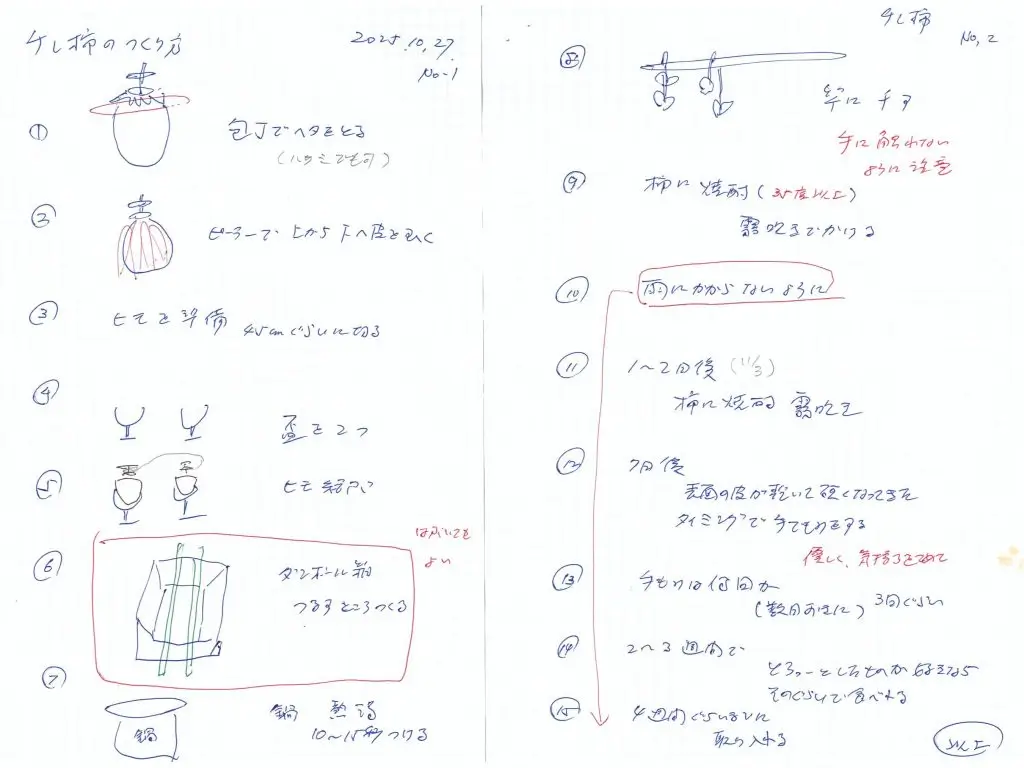 干し柿のつくり方
2025.10.27
No-1
① 包丁でヘタをとる
(ハサミでも可)
② ピーラーで上から下へ皮をむく
③ ヒモを準備 45cmぐらいに切る
④
盃を2つ
⑤ ヒモ結び
はぶいても
よい
⑥ ダンボール箱
つるすところつくる
⑦
鍋
鍋 熱湯
10〜15秒つける
干し柿
No, 2
⑧
竿に干す
手に触れない
ように注意
⑨ 柿に焼酎(35度以上)
霧吹きでかける
⑩ 雨にかからないように
⑪ 1〜2日後 (11/3)
柿に焼酎 霧吹き
⑫ 7日後
表面の皮が乾いて硬くなってきた
タイミングで手でもみをする
優しく、気持ちをこめて
⑬ 手もみは何回か
(数日おきに) 3回ぐらい
⑭ 2〜3週間で
とろっーとしたものが好きなら
そのぐらいで食べれる
⑮ 4週間ぐらいまでに
取り入れる
以上